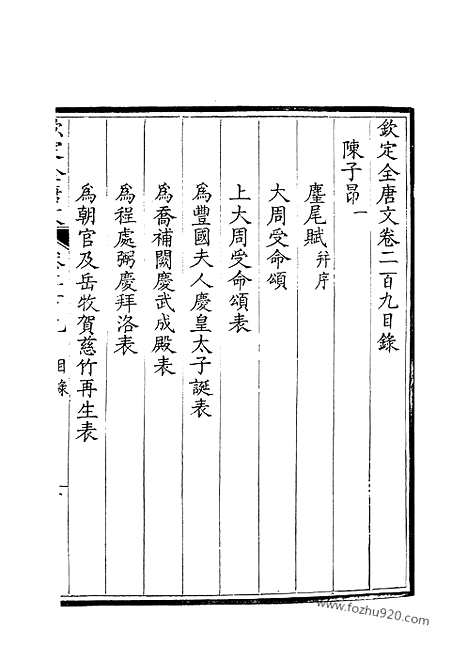 欽定全唐文卷二百九目錄
陳子昂一
麈尾賦并序
大周受命頌
上大周受命頌表
為豐國夫人慶皇太子誕表
為喬補闕慶武成殿表
為程處弼慶拜洛表
為朝官及岳牧賀慈竹再生表
欽定全唐文
目錄
www.fozhu920.com